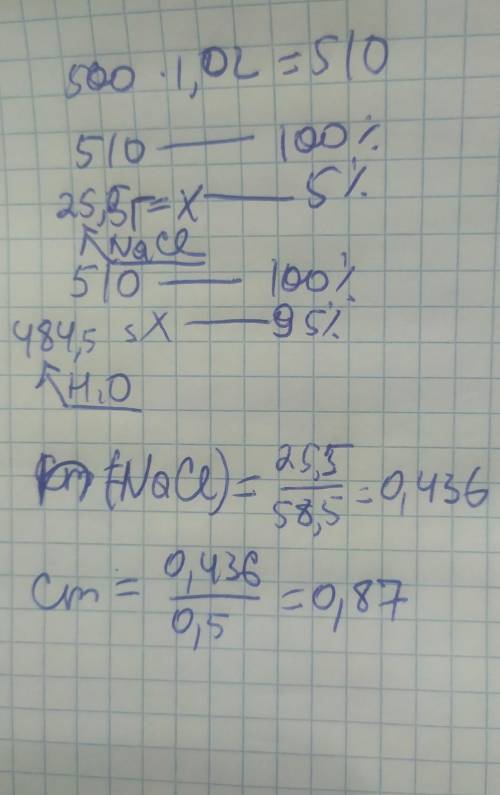 500 · 1,02 = 510
510 — 100%
25,5г = X — 5%
NaCl
510 — 100%
484,5 = X — 95%
H₂O
(NaCl) = 25,5 / 58,5 = 0,436
Cm = 0,436 / 0,5 = 0,87